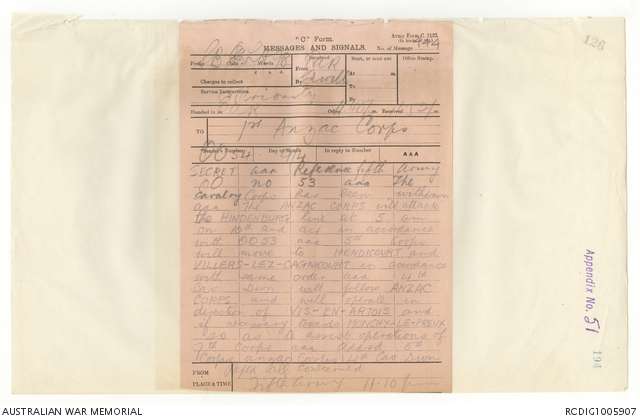 "C" Form.
Army Form C. 2123.
MESSAGES AND SIGNALS.
No. of Message 194
Prefix Code Words
Received
From
By
Sent, or sent out
At
To
By
Office Stamp.
Charges to collect
Service Instructions. Priority
Handed in at Office m. Received m.
TO 1st Anzac Corps
Sender's Number Day of Month In reply to Number AAA
OO 54 9/4
SECRET aaa Reference fifth Army
OO no 53 aaa The
cavalry Corps has been withdrawn
aaa The ANZAC CORPS will attack
the HINDENBURG line at 5 am
on 10th and act in accordance
with OO 53 aaa 5th Corps
will move to HENDICOURT and
VILLERS-LEZ-CAGNICOURT in accordance
with same order aaa 4th
Cav Divn will follow ANZAC
CORPS and will operate in
direction of VIS-EN-ARTOIS and
if necessary towards MONCHY-LE-PREUX
so as to assist operations of
7th Corps aaa 5th
Corps anzac Corps 4th Cav Divn
all concerned
FROM
PLACE & TIME Fifth Army 11-10 pm
126
Appendix No. 51
194
AUSTRALIAN WAR MEMORIAL
RCDIG1005907